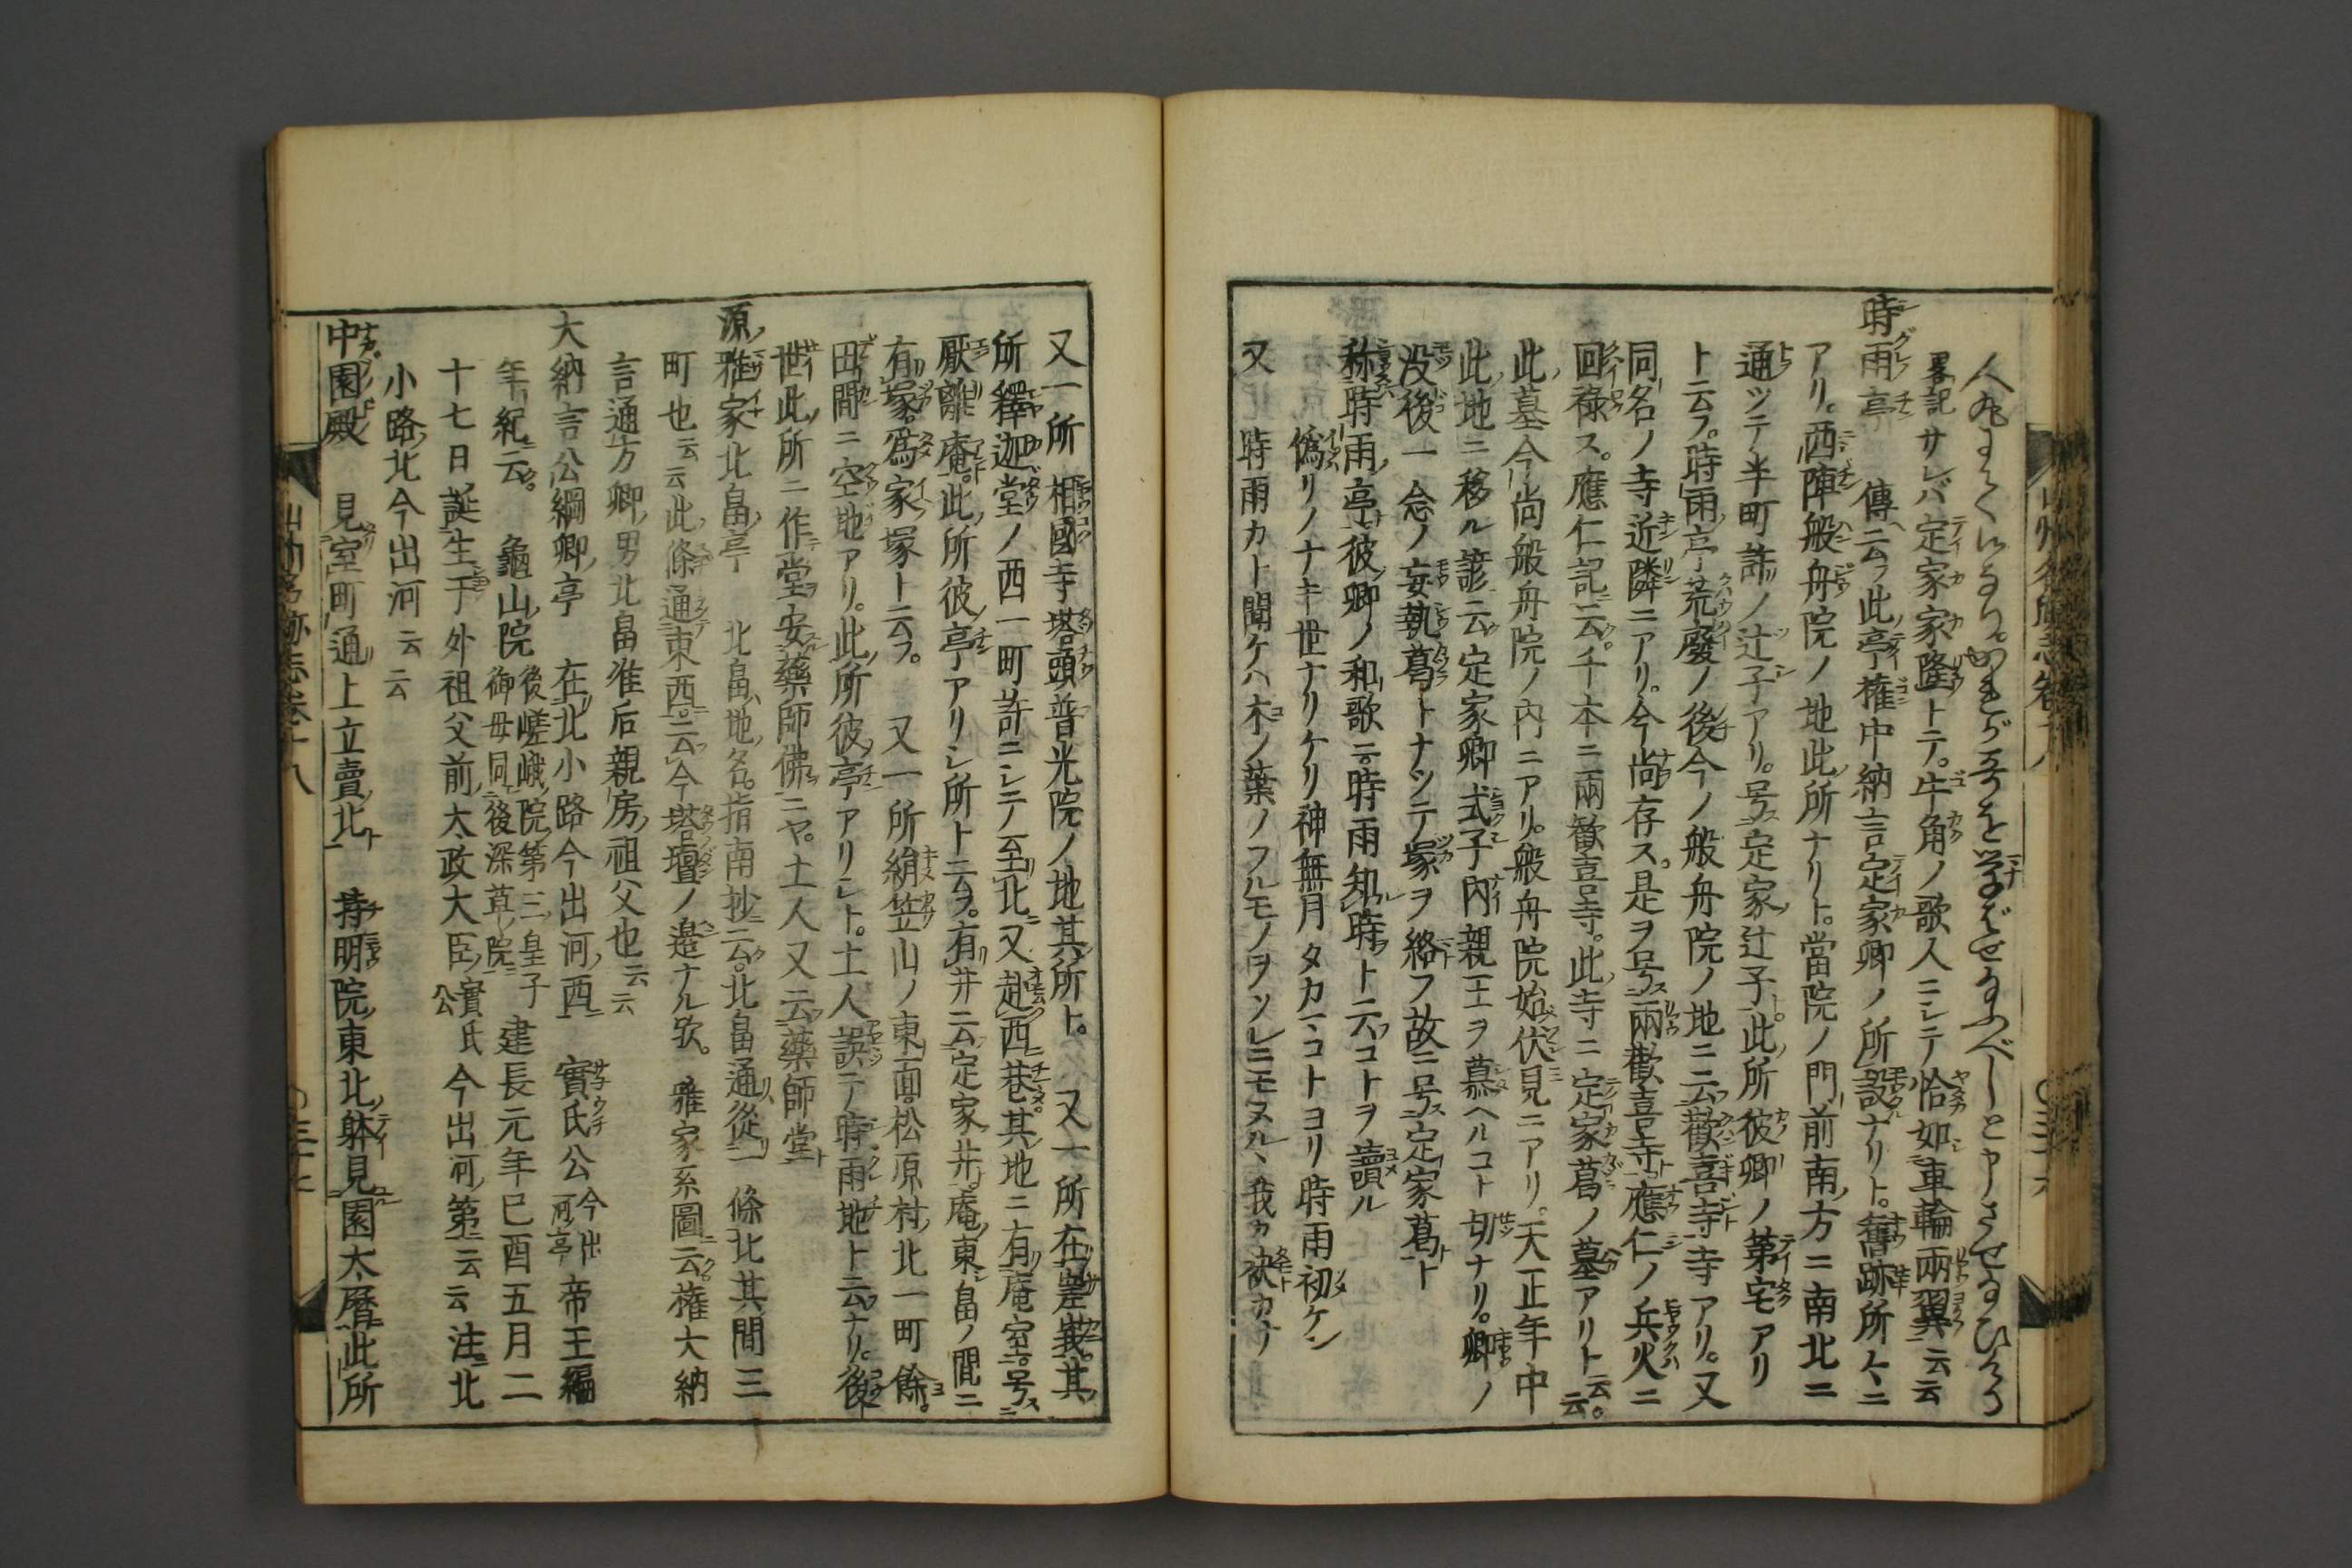 人丸
畧記サレバ定家家隆トテ。牛角ノ歌人ニシテ恰如車輪兩翼云云
時雨亭　傳云フ此亭權中納言定家卿ノ所設ナリト。舊跡所々ニ
アリ。西陣般舟院ノ地此所ナリト。當院ノ門前南方ニ南北ニ
通ツテ半町許ノ辻子アリ。号定家辻子ト。此所彼卿ノ第宅アリ
ト云フ。時雨亭荒廢ノ後今ノ般舟院ノ地ニ云歡喜寺寺アリ。又
同名ノ寺近隣ニアリ。今尚存ス。是ヲ号兩歡喜寺ト應仁ノ兵火ニ
回祿ス。應仁記云。千本ニ兩歡喜寺。此寺ニ定家葛ノ墓アリト云云。
此墓今尚般舟院ノ内ニアリ。般舟院始伏見ニアリ。天正年中
此地ニ移ル諺云定家卿式子内親王ヲ慕ヘルコト切ナリ。卿ノ
没後一念ノ妄執葛トナツテ塚ヲ絡フ故ニ号定家葛ト
称時雨亭彼卿ノ和歌ニ時雨知時ト云コトヲ讀ル
偽リノナキ世ナリケリ神無月タカマコトヨリ時雨初ケン
又　時雨カト聞ケハ木ノ葉ノフルモノヲソレニモヌルヽ我カ袂カナ
又一所　相國寺塔頭普光院ノ地其所ト。　又一所在嵯峨。其
所釋迦堂ノ西一町許ニシテ至北又赴西巷。其地ニ有庵室号
厭離庵。此所彼亭アリシ所ト云フ。有井云定家井。庵東畠ノ間ニ
有塚。爲家塚ト云フ。　又一所絹笠山ノ東面。松原村北一町餘。
田間ニ空地アリ。此所彼亭アリシト。土人誤テ時雨地ト云ナリ。後
世此所ニ作堂安藥師佛ニヤ。土人又云藥師堂
源雅家北畠亭　北畠地名。指南抄云。北畠通從一條北其間三
町也云云此條通東西云今塔壇ノ邊ナル歟。　雅家系圖云權大納
言通方卿男北畠准后親房祖父也云云
大納言公綱卿亭　在北小路今出河西　實氏公今出河亭帝王編
年紀云。　龜山院後嵯峨院第三皇子御母同後深草院建長元年巳酉五月二
十七日誕生于外祖父前太政大臣實氏公今出河第云云注北
小路北今出河云云
中園殿　見室町通上立賣北　持明院東北躰見園太暦此所